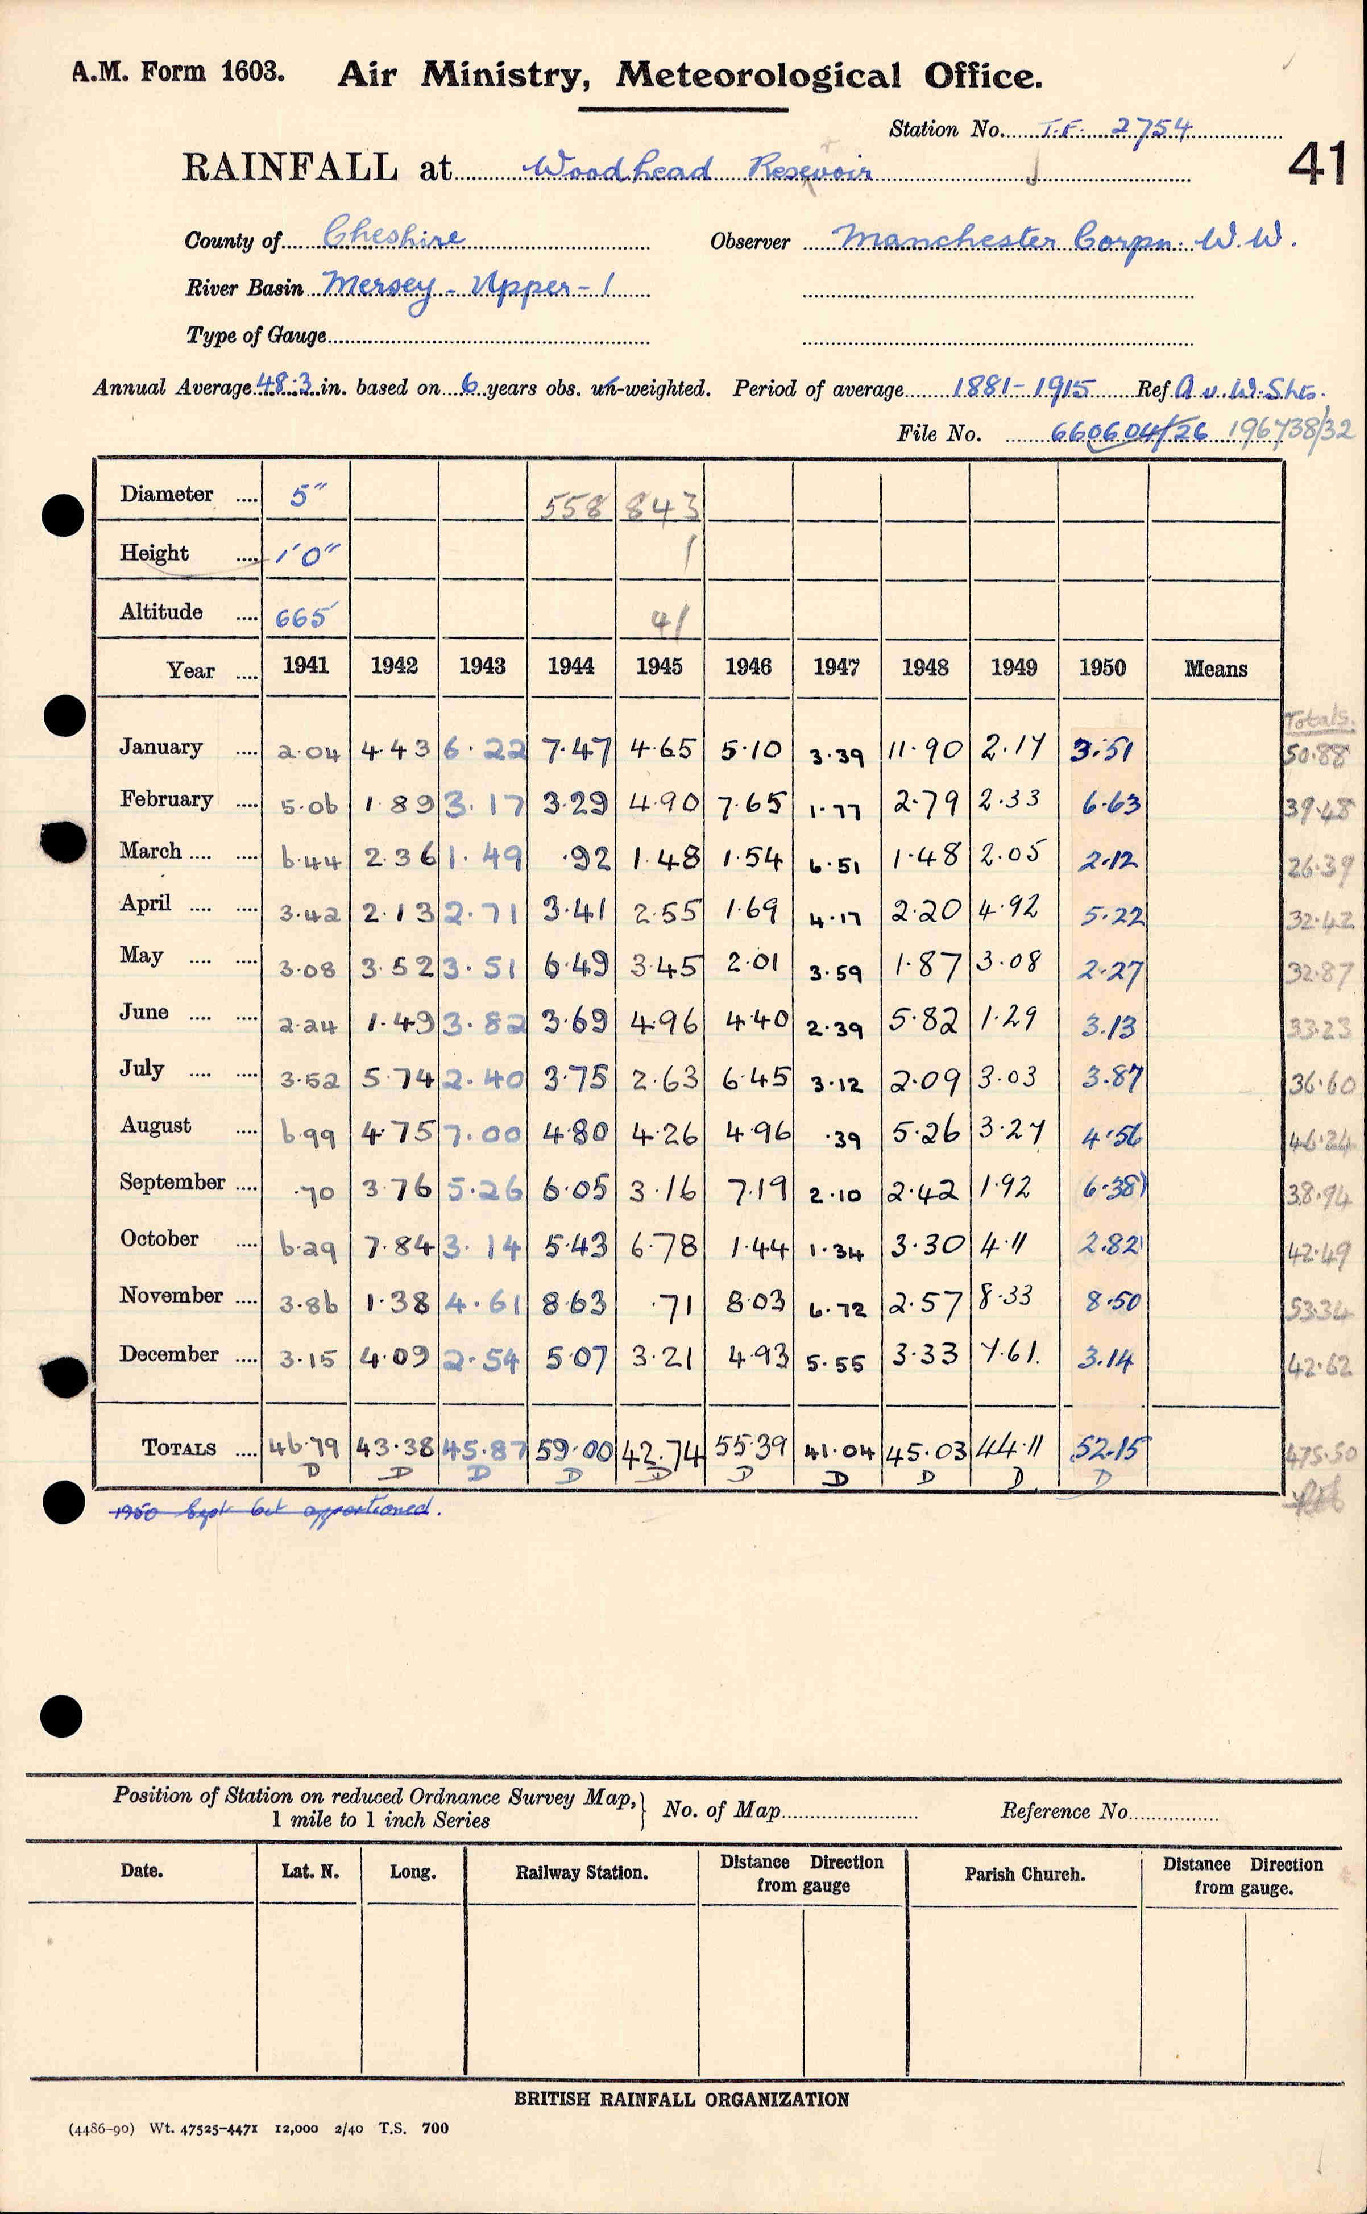 A.M. Form 1603. Air Ministry, Meteorological Office.
Station No. T.F. 2754
41
RAINFALL at Woodhead Resevoir
County of Cheshire Observer Manchester Corpn. W.W.
River Basin Mersey - Upper - 1
Type of Gauge
Annual Average 48.3 in. based on 6 years obs. un-weighted. Period of average 1881-1915 Ref A v. W. Shts.
File No. 660604/26 196738/32
Diameter .... 5" 558 843
Height .... 1'0" 1
Altitude .... 665 41
Year .... 1941 1942 1943 1944 1945 1946 1947 1948 1949 1950 Means
Totals.
January .... 2.04 4.43 6.22 7.47 4.65 5.10 3.39 11.90 2.17 3.51 50.88
February .... 5.06 1.89 3.17 3.29 4.90 7.65 1.77 2.79 2.33 6.63 39.48
March .... .... 6.44 2.36 1.49 .92 1.48 1.54 6.51 1.48 2.05 2.12 26.39
April .... .... 3.42 2.13 2.71 3.41 2.55 1.69 4.17 2.20 4.92 5.22 32.42
May .... .... 3.08 3.52 3.51 6.49 3.45 2.01 3.59 1.87 3.08 2.27 32.87
June .... .... 2.24 1.49 3.82 3.69 4.96 4.40 2.39 5.82 1.29 3.13 33.23
July .... .... 3.52 5.74 2.40 3.75 2.63 6.45 3.12 2.09 3.03 3.87 36.60
August .... 6.99 4.75 7.00 4.80 4.26 4.96 .39 5.26 3.27 4.56 46.24
September .... .70 3.76 5.26 6.05 3.16 7.19 2.10 2.42 1.92 6.38 38.94
October .... 6.29 7.84 3.14 5.43 6.78 1.44 1.34 3.30 4.11 2.82 42.49
November .... 3.86 1.38 4.61 8.63 .71 8.03 6.72 2.57 8.33 8.50 53.34
December .... 3.15 4.09 2.54 5.07 3.21 4.93 5.55 3.33 7.61. 3.14 42.62
TOTALS .... 46.79 43.38 45.87 59.00 42.74 55.39 41.04 45.03 44.11 52.15 475.50
D D D D D D D D D. D
1950 Sept Oct apportioned.
Position of Station on reduced Ordnance Survey Map, } No. of Map Reference No.
1 mile to 1 inch Series
Date. Lat. N. Long. Railway Station. Distance Direction from gauge Parish Church. Distance Direction from gauge.
BRITISH RAINFALL ORGANIZATION
(4486-90) Wt. 47525-4471 12,000 2/40 T.S. 700